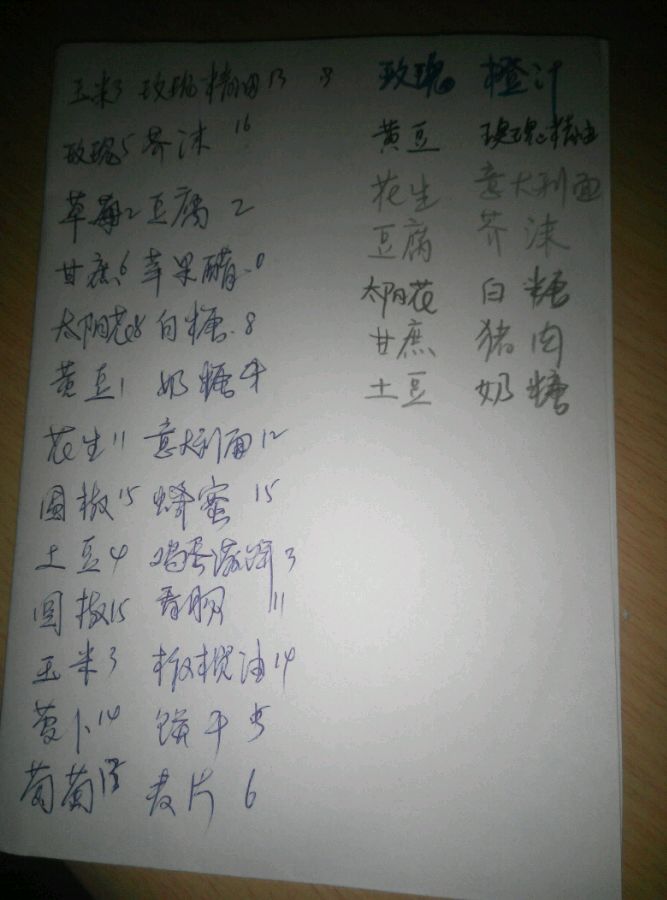 玉米3 玫瑰精油13
玫瑰5 芥沫 16
草莓2 豆腐 2
甘蔗6 苹果醋
太阳花8 白糖 8
黄豆1 奶糖
花生11 意大利面12
圆椒15 蜂蜜 15
土豆4 鸡蛋 3
圆椒15 香肠 11
玉米3 橄榄油14
萝卜14 饼干
葡萄 麦片 6
玫瑰 橙汁
黄豆 玫瑰精油
花生 意大利面
豆腐 芥沫
太阳花 白糖
甘蔗 猪肉
土豆 奶糖